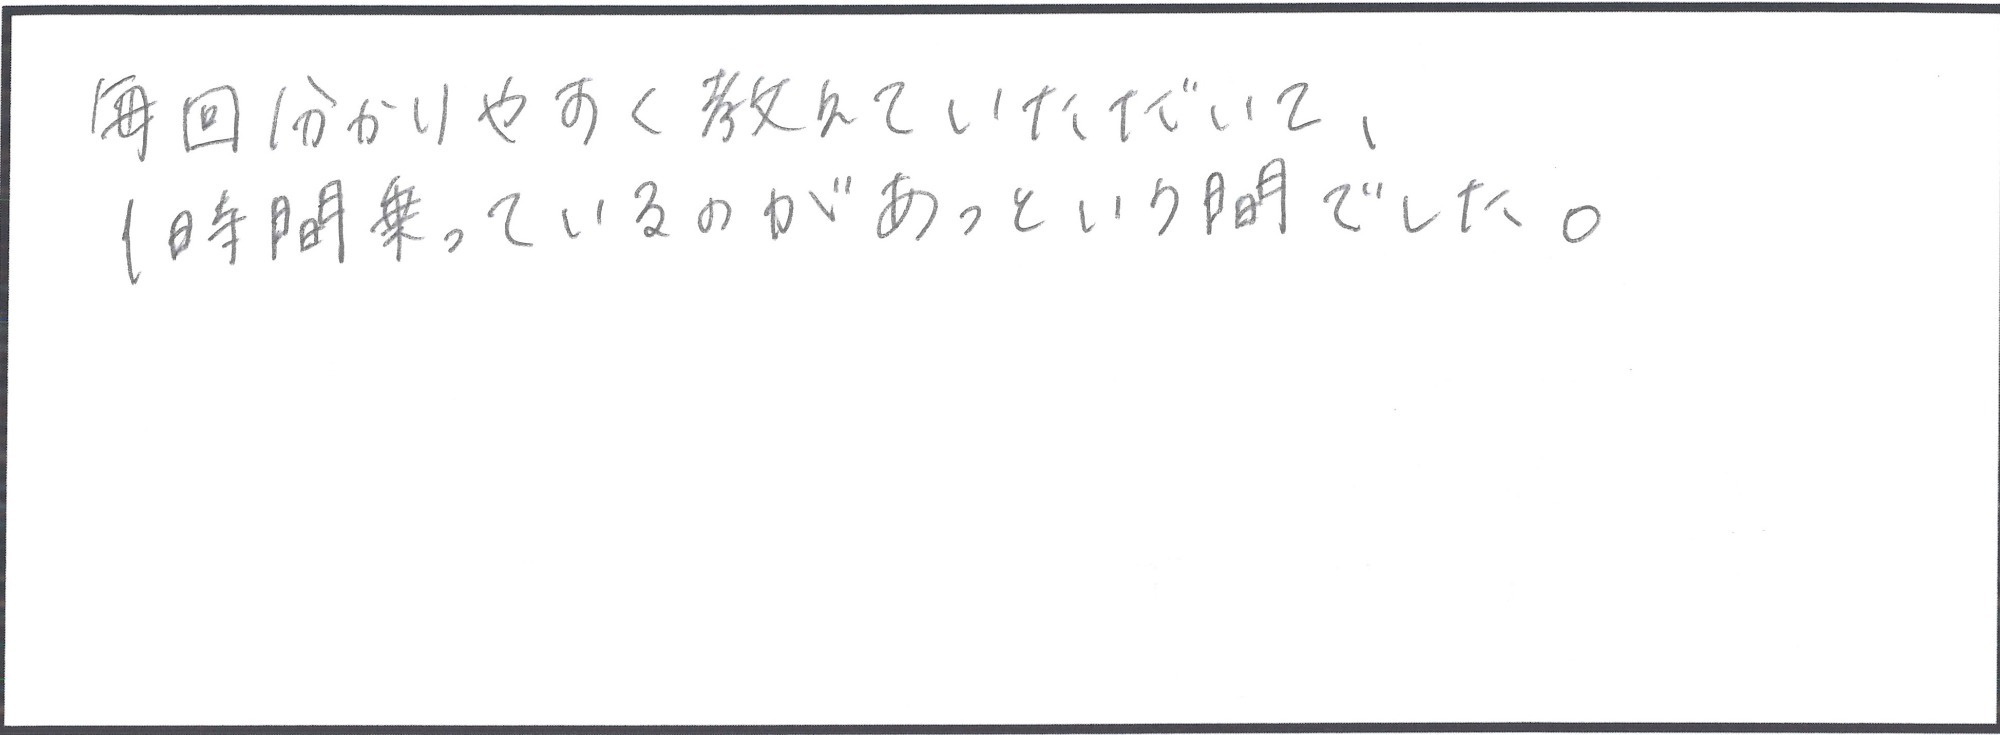 毎回分かりやすく教えていただいて、
1時間乗っているのがあっという間でした。